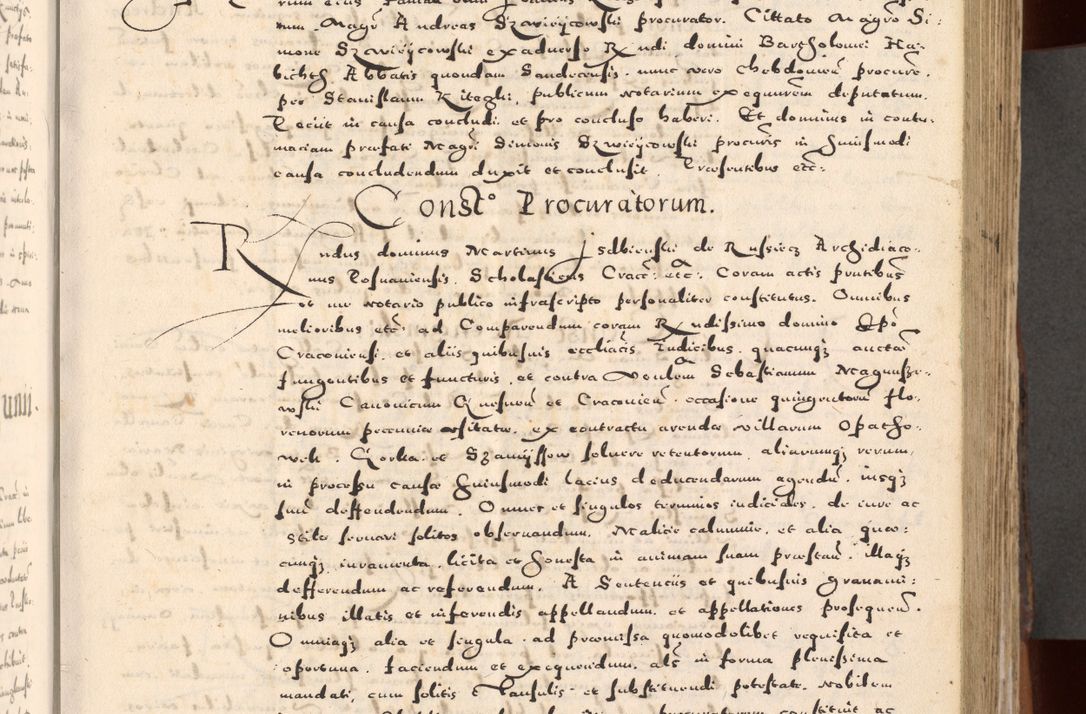 num. Magr̃ Andreas Dzwierzcowski procurator. Cittato Magr̃o Si-
mone Dzwierzcowski ex adverso Rndi domini Bartholomei Ha-
bichth Abbatis quondam Sandecensis. nunc vero Chebdovien̄ procurē.
per Stanislaum Kiteghi, publicum notarium exequutem deputatum.
Peciit in causa concludi. et pro concluso haberi. Et dominus in contu-
maciam præfati Magri Simonis Dzwierzcowski procuris in huiusmodi
causa concludendum duxit et conclusit. Præsentibus etc:
Constº Procuratorum.
Rndus dominus Martinus Isdbienski de Russiecz Archidiaco-
nus Posnaniensis. Scholasticus Crac: etc: Coram actis pntibus
et me notario publico infrascripto personaliter constitutus. Omnibus
melioribus etc. ad Comparendum coram Rndissimo domino Epõ
Craconiensi. et aliis quibusvis eccliacis Iudicibus. quacunqз auctẽ
fungentibus et functuris. et contra Venlem Sebastianum Magnusze-
wski Canonicum Gnesneñ et Cracovieñ. occasione quingentorum flo-
renorum pecuniæ usitatæ. ex contractu arendæ villarum Opatho-
wek. Gorka. et Dzamijssow solvere retentorum. aliarumqз rerum,
in processu causæ huiusmodi lacius deducendarum agendū. insqз
suū deffendendum. Omnes et singulos terminos iudiciales. de iure ac
stilo servari solitos observandum. Maliciæ calumniæ. et alia quæ-
cunqз iuramenta. licita et honesta in animam suam præstañ. illaqз
defferendum ac referendum. A Sentenciis et quibusvis gravami-
nibus illatis et inferendis appellandum. et appellationes prosequeñ.
Omniaqз alia et singula. ad præmissa quomodolibet requisita et
oportuna. faciendum et exequendum. als̃ in forma plenissima
mandati, cum solitis Clausulis. et substituendi potestate. Nobilem